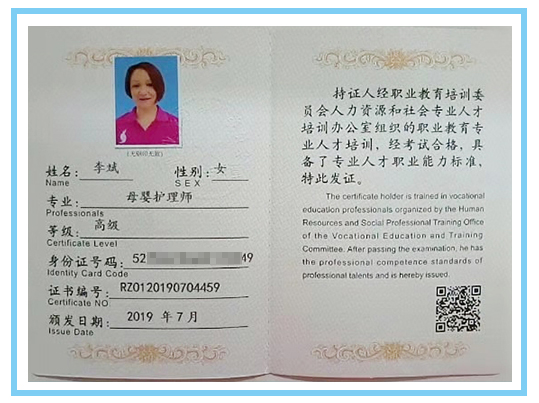 (无钢印无效)
姓名： 李斌 性别： 女
Name SEX
专业： 母婴护理师
Professionals
等级： 高级
Certificate Level
身份证号码： 52 49
Identity Card Code
证书编号： RZ0120190704459
Certificate NO
颁发日期： 2019 年 7 月
Issue Date
持证人经职业教育培训委
员会人力资源和社会专业人才
培训办公室组织的职业教育专
业人才培训、经考试合格，具
备了专业人才职业能力标准，
特此发证。
The certificate holder is trained in vocational
education professionals organized by the Human
Resources and Social Professional Training Office
of the Vocational Education and Training
Committee. After passing the examination, he has
the professional competence standards of
professional talents and is hereby issued.